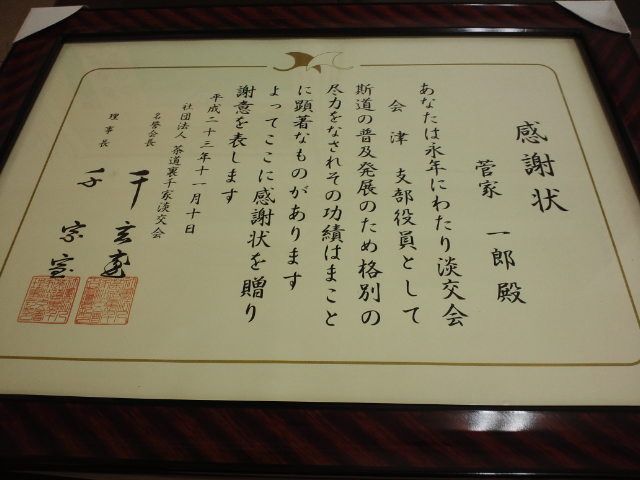 感謝状
菅家 一郎 殿
あなたは永年にわたり淡交会
会津 支部役員として
斯道の普及発展のため格別の
尽力をなされその功績はまこと
に顕著なものがあります
よってここに感謝状を贈り
謝意を表します
平成二十三年十一月十日
社団法人 茶道裏千家淡交会
名誉会長 千 玄室
理事長 千 宗室